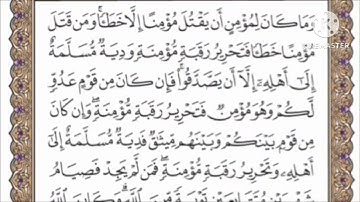 وَمَا كَانَ لِمُؤْمِنٍ أَن يَقْتُلَ مُؤْمِنًا إِلَّا خَطَـًٔا ۚ وَمَن قَتَلَ
مُؤْمِنًا خَطَـًٔا فَتَحْرِيرُ رَقَبَةٍ مُّؤْمِنَةٍ وَدِيَةٌ مُّسَلَّمَةٌ
إِلَىٰٓ أَهْلِهِۦٓ إِلَّآ أَن يَصَّدَّقُوا۟ ۚ فَإِن كَانَ مِن قَوْمٍ عَدُوٍّ
لَّكُمْ وَهُوَ مُؤْمِنٌ فَتَحْرِيرُ رَقَبَةٍ مُّؤْمِنَةٍ ۖ وَإِن كَانَ
مِن قَوْمٍۭ بَيْنَكُمْ وَبَيْنَهُم مِّيثَٰقٌ فَدِيَةٌ مُّسَلَّمَةٌ إِلَىٰٓ
أَهْلِهِۦ وَتَحْرِيرُ رَقَبَةٍ مُّؤْمِنَةٍ ۖ فَمَن لَّمْ يَجِدْ فَصِيَامُ